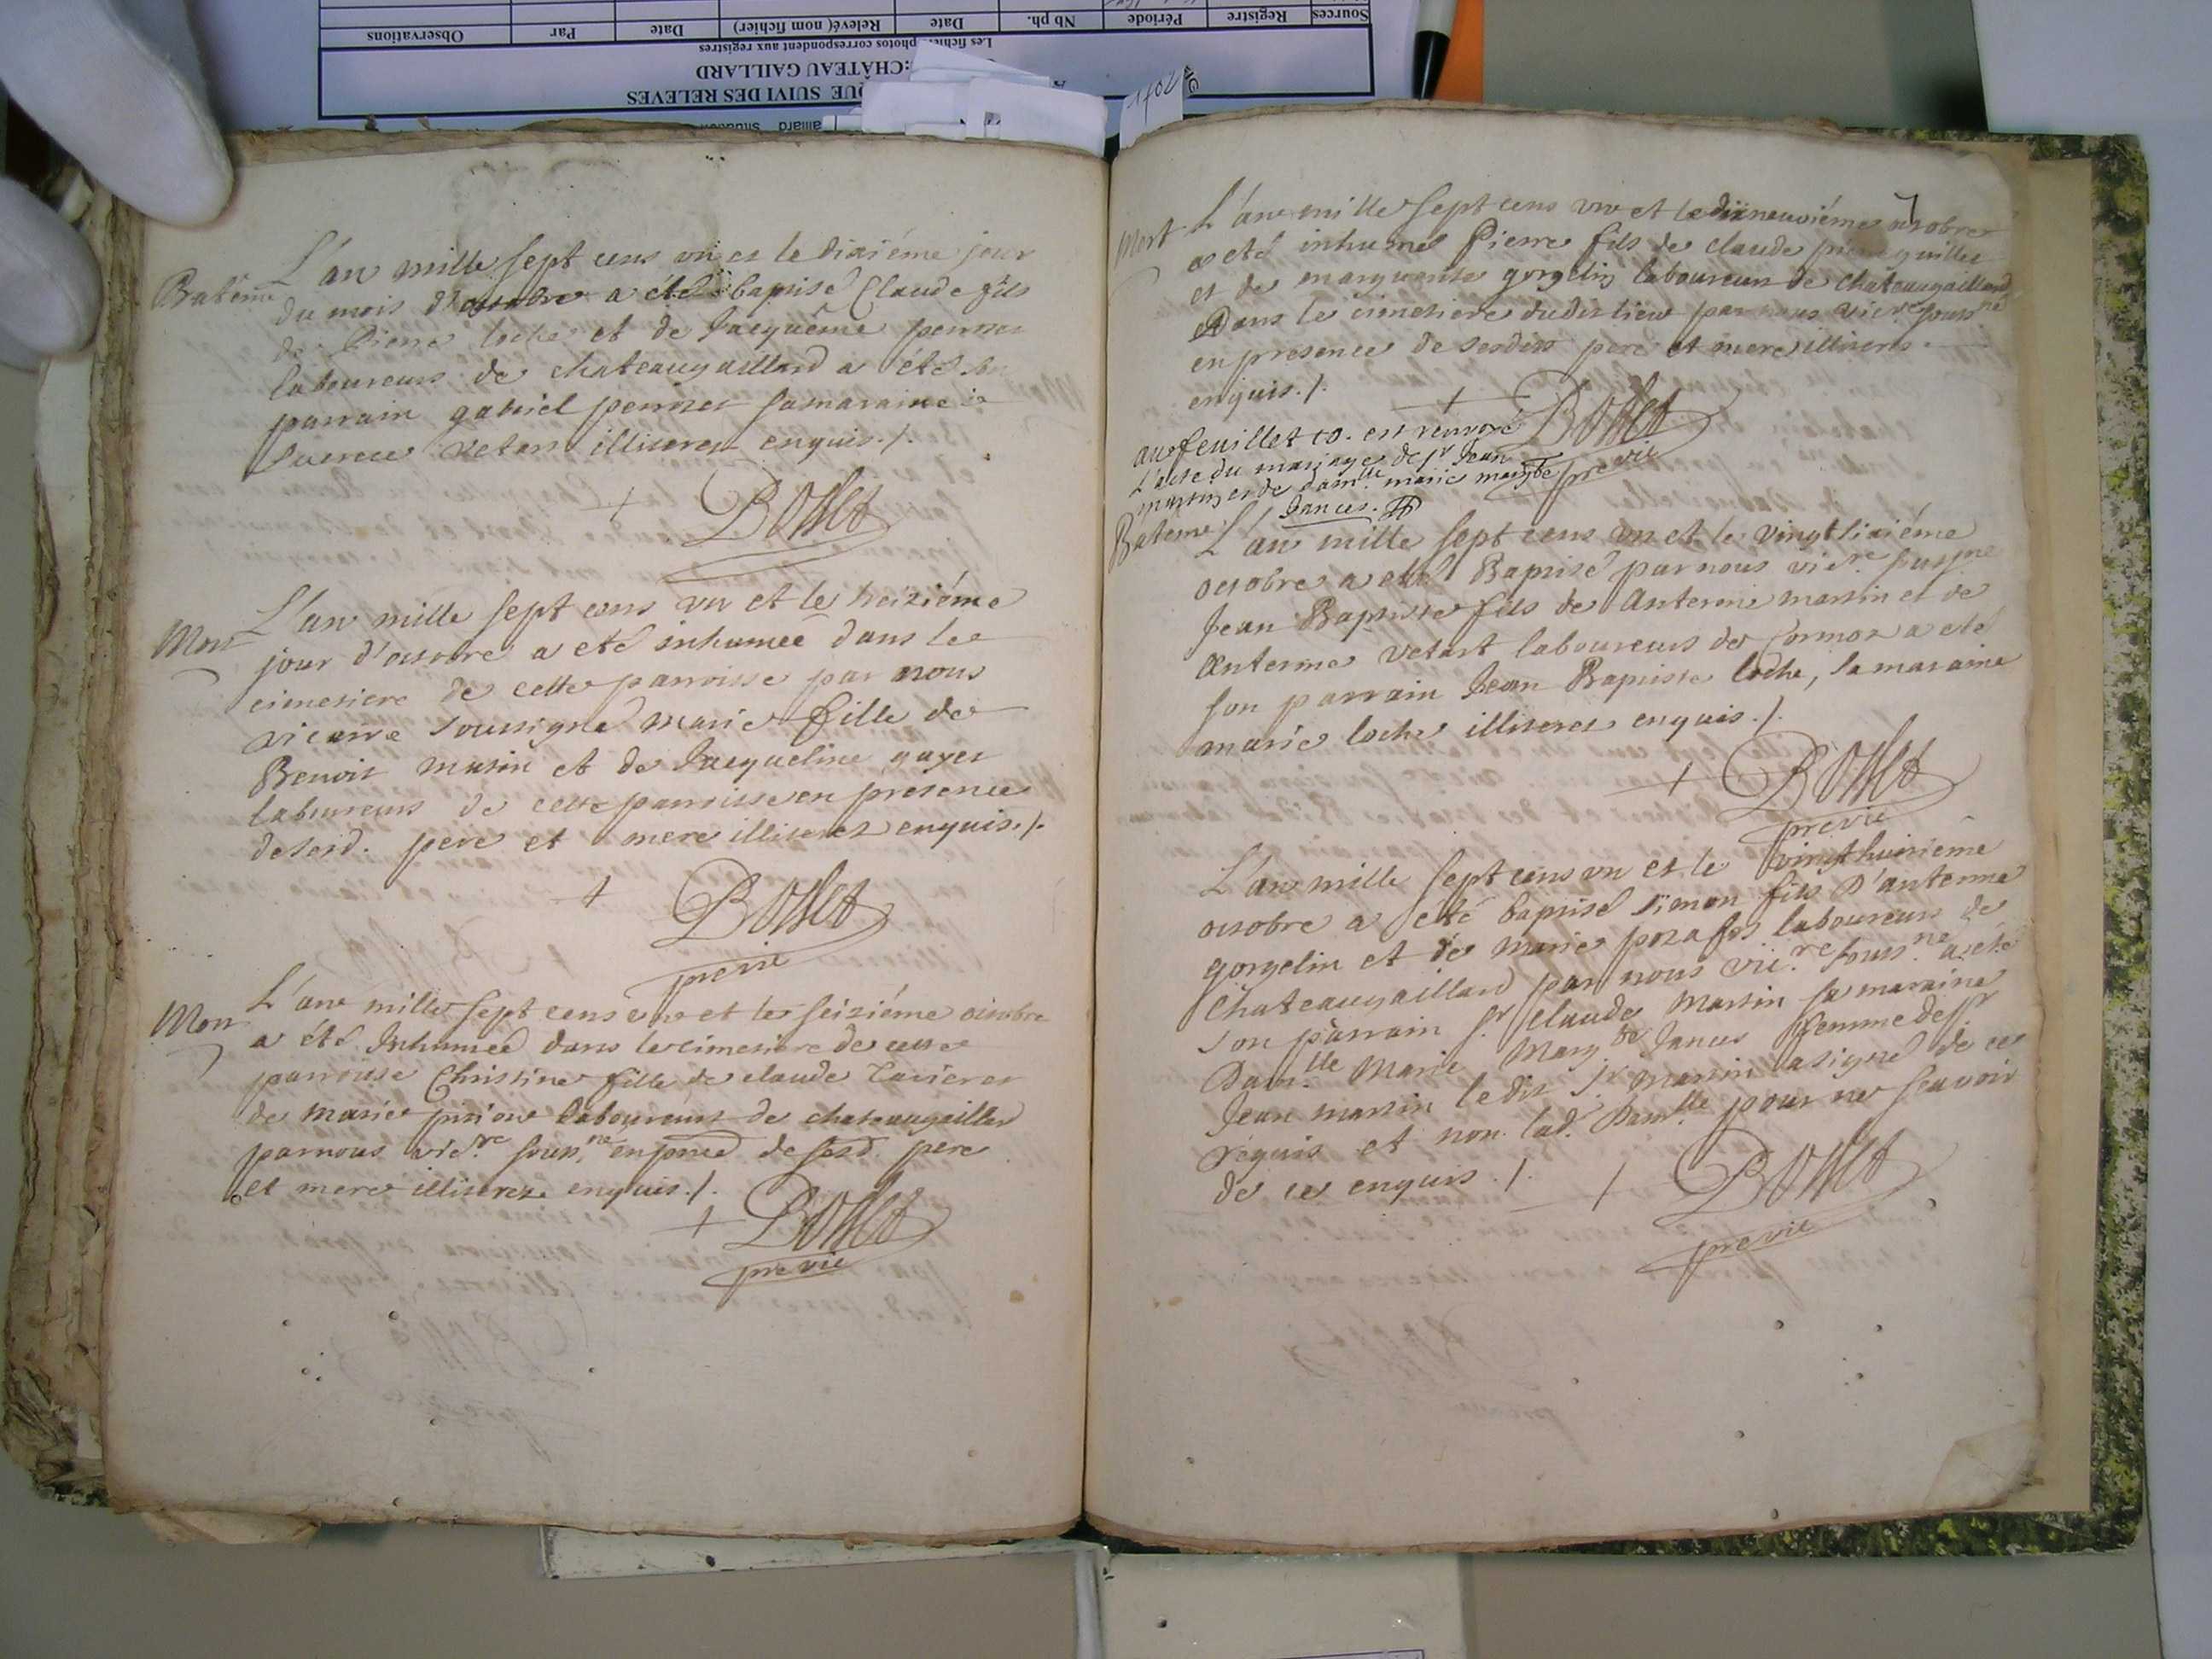 Sources Registre Période Nb ph. Date Relevé (nom fichier) Date Par Observations
Les fichiers photos correspondent aux registres
CHÂTEAU GAILLARD
SUIVI DES RELEVES
1702
Batême
L'an mille sept cens un et le dixiéme jour
du mois d'octobre a été baptisé Claude fils
de Pierre loche et de Jacquême perroset
laboureurs de chateaugaillard a été son
parrain gabriel perroset sa maraine
vetard illiterez enquis ./.
+ Bosset
Mort
L'an mille sept cens un et le treiziéme
jour d'octobre a eté inhumée dans le
cimetiere de cette parroisse par nous
vicaire soussigné marie fille de
Benoit matin et de Jacqueline gayet
laboureurs de cette parroisse en presence
desesd. pere et mere illiterez enquis ./.
+ Bosset
pre vic
Mort
L'an mille sept cens un et le seiziéme octobre
a été Inhumée dans le cimetiere de cette
parroisse Christine fille de claude
de marie laboureurs de chateaugaillard
par nous vic.re souss.né en pnce de sesd. pere
et mere illiterez enquis ./.
+ Bosset
pre vic
7
Mort
L'an mille sept cens un et le dixneuviéme octobre
a eté inhumé Pierre fils de claude
et de marguerite gorgelin laboureurs de chateaugaillard
Dans le cimetiere dudit lieu par nous vic.re souss.né
en presence de sesdits pere et mere illiterés
enquis ./.
+ Bosset
pre vic
au feuillet 10. est renvoyé
L'acte du mariage de sr Jean
martin et de dam.lle marie marg.te
Jances.
Bateme
L'an mille sept cens un et le vingtsixiéme
octobre a eté Baptisé par nous vic.re
Jean Baptiste fils de Anterme martin et de
Anterme vetart laboureurs de Cormoz a eté
son parrain Jean Baptiste loche, sa maraine
marie loche illiterez enquis ./.
+ Bosset
pre vic
L'an mille sept cens un et le vingthuitiéme
octobre a été baptisé simon fils d'anterme
gorgelin et de marie pozafos laboureurs de
Chateaugaillard par nous vic.re souss.né a été
son parrain sr claude Martin sa maraine
Dam.lle Marie Marg.te Jances femme de sr
Jean martin le dit sr martin a signé de ce
réquis et non lad. Dam.lle pour ne scavoir
de ce enquis ./.
+ Bosset
pre vic